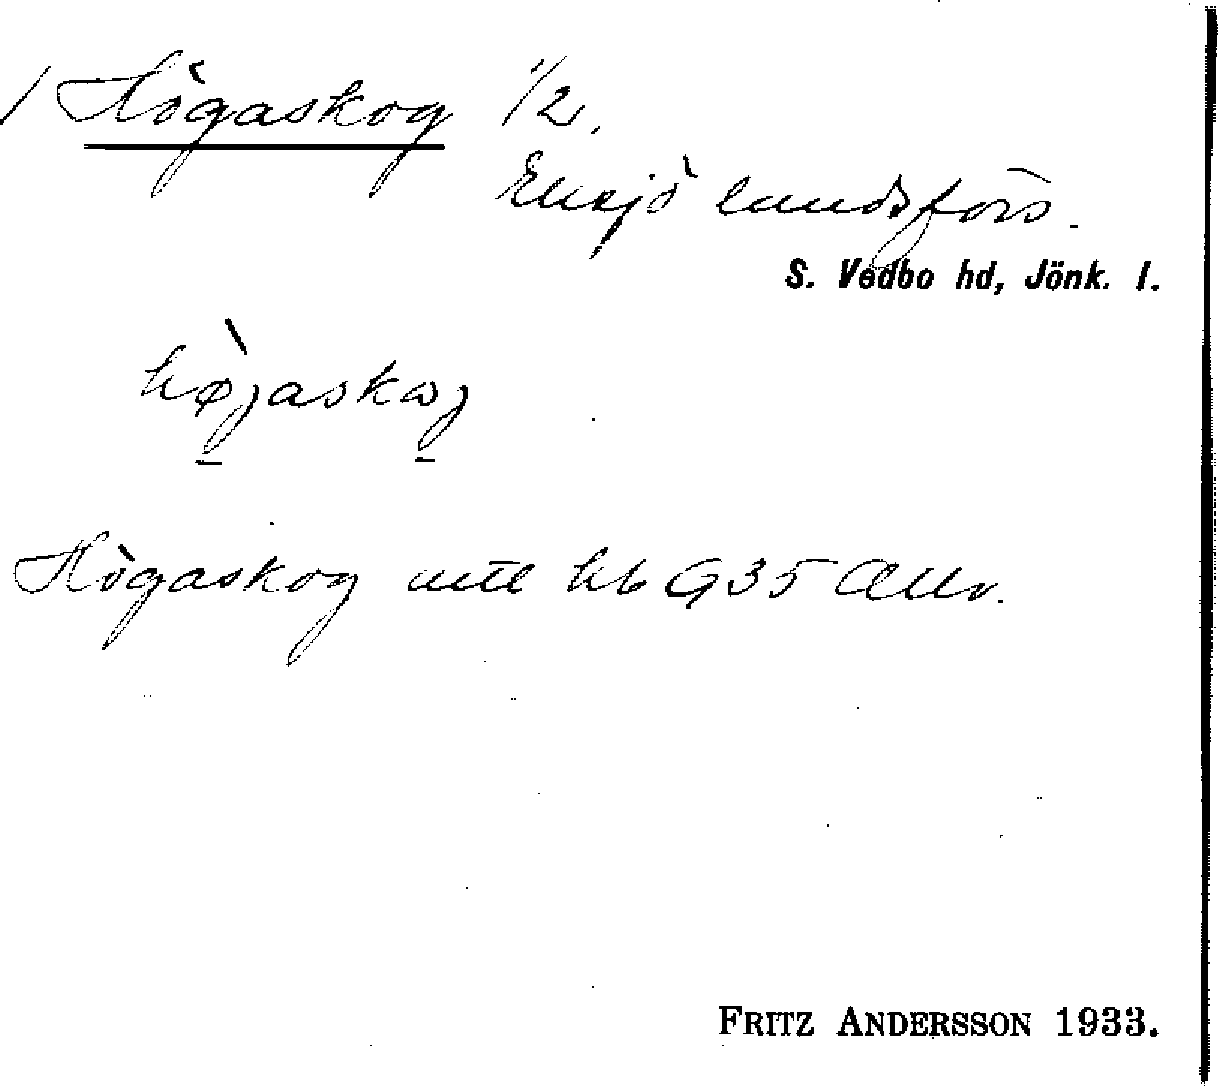 / Högaskog 1/2.
Eksjö landsförs.
S. Vedbo hd, Jönk. l.
hø̀jaskoj
Högaskog mtl hb G35 Allv.
FRITZ ANDERSSON 1933.